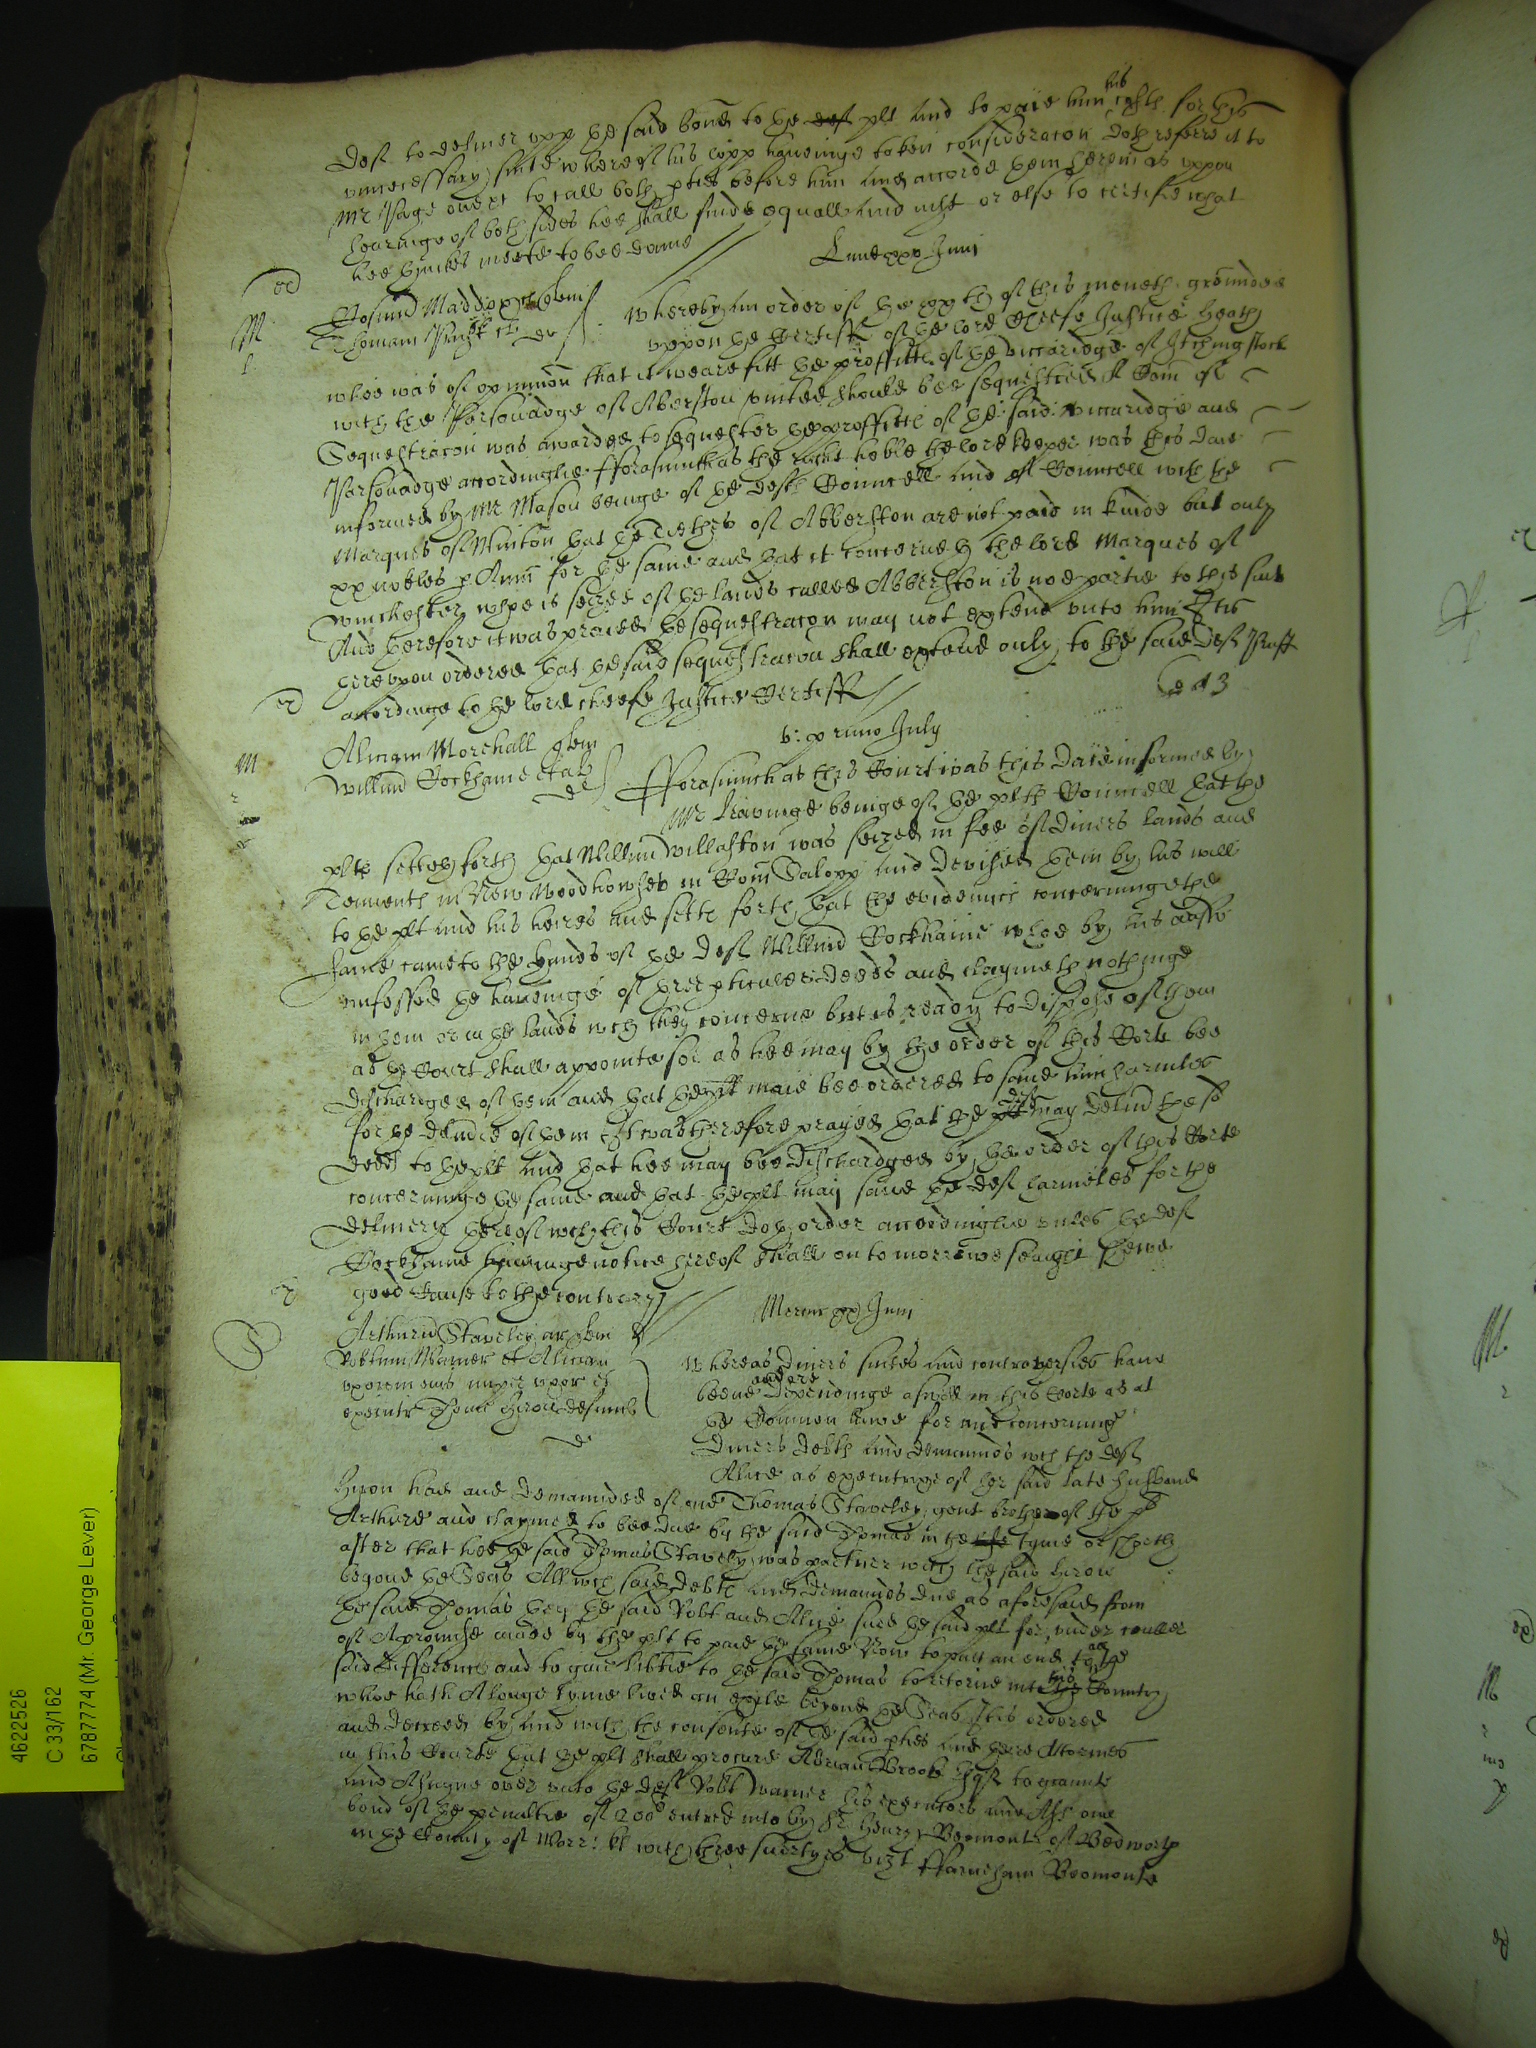 Deft to deliver upp the said bond to the deft plt and to paie him his costs for this
unnecessary suite whereof his lopp haveinge taken consideracon doth referre it to
Mr Page to call both pties before him and accorde them herein as uppon
hearinge of both sides hee shall finde equall and iust or else to certifie what
hee thinkes meete to bee donne
Lune xxx Junii
Maddox
Thomam
Whereby an order of the xx th of this moneth grounded
uppon the Certifft of the lord cheefe Justice Heath
whoe was of oppinion that it weare fitt the proffitts of the viccaridge of Itchingstock
with the Parsonadge of Aberston united should bee sequestred A Com of
Sequestracon was awarded to sequester the proffitts of the said viccaridge and
Parsonadge accordinglie fforasmuch as the right hoble the lord keeper was this daie
informed by Mr Mason beinge of the defts Councell and of Councell with the
Marques of Winton that the Tiethes of Abberston are not paid in kinde but only
xx nobles p Ann for the same and that it concerneth the lord Marques of
Winchester whoe is seized of the lands called Abberston is noe partie to this suite
And therefore it was praied the sequestracon may not extend unto him It is
thereupon ordered that the said sequestracon shall extend only to the said Deft
accordinge to the lord cheefe Justice Certifft
primo July
Aliciam Morehall
Willm Cockhame et al
fforasmuch as this Court was this daie informed by
Mr beinge of the plts Councell that the
plts setteth forth that Willm Willaston was seized in fee of divers lands and
Tenements in New Woodhowses in Com Salopp and devised them by his will
to the plt and his heires and sette forth that the evidences concerninge the
same came to the hands of the deft Willm Cockhame whoe by his
confessed the haveinge of pticuler deeds and claymeth nothinge
in them or in the lands wch they concerne but is ready to dispose of them
as the Court shall appointe soe as hee may by the order of this Corte bee
discharged of them and that the plt maie bee ordered to save him harmles
for the deliuie of them It was therefore prayed that the plt deft may deliu the sd
deeds to the plt and that hee may bee dischardged by the order of this Corte
concerninge the same and that the plt may save the deft harmeles for the
delivery thereof wch this Court doth order accordinglie unles the deft
Cockhame haveinge notice hereof shall on to morrowe seaight shewe
good cause to the contrary
Junii
Arthurus Staveley ar
Robtum Warner et Aliciam
uxorem eius nuper uxor et
executr
Whereas divers suites and controversies have
beene and are dependinge aswell in this Corte as at
the Common lawe for and concerninge
divers debts and demaunds wch the deft
Alice as executrixe of her said late husband
Hiron had and demaunded of one Thomas Staveley gent brother of the sd
Arthure and claymed to bee due by the said Thomas in the life tyme of
after that hee the said Thomas Stavely was partner with the said Hiron
beyond the Seas All wch said debts and demaunds due as aforesaid from
the said Thomas they the said Robt and Alice sued the said plt for under couller
of A promise made by the plt to paie the same Now to putt an end to all the
said difference and to give libtie to the said Thomas to retorne into the this Country
whoe hath A longe tyme lived an exile beyond the Seas It is ordered
and decreed by and with the consente of the said pties and there Attornies
in this Courte that the plt shall procure Adrian Esqr to graunte
and Assigne over unto the deft Robt Warner his executors and Ass one
bond of the penaltie of 200 entred into by Sr Henry Beomonte of Bedworth
in the County of Warr kt with three suertyes vizt ffarneham Beomonte
4622526
C 33/162
6787774 (Mr. George Lever)